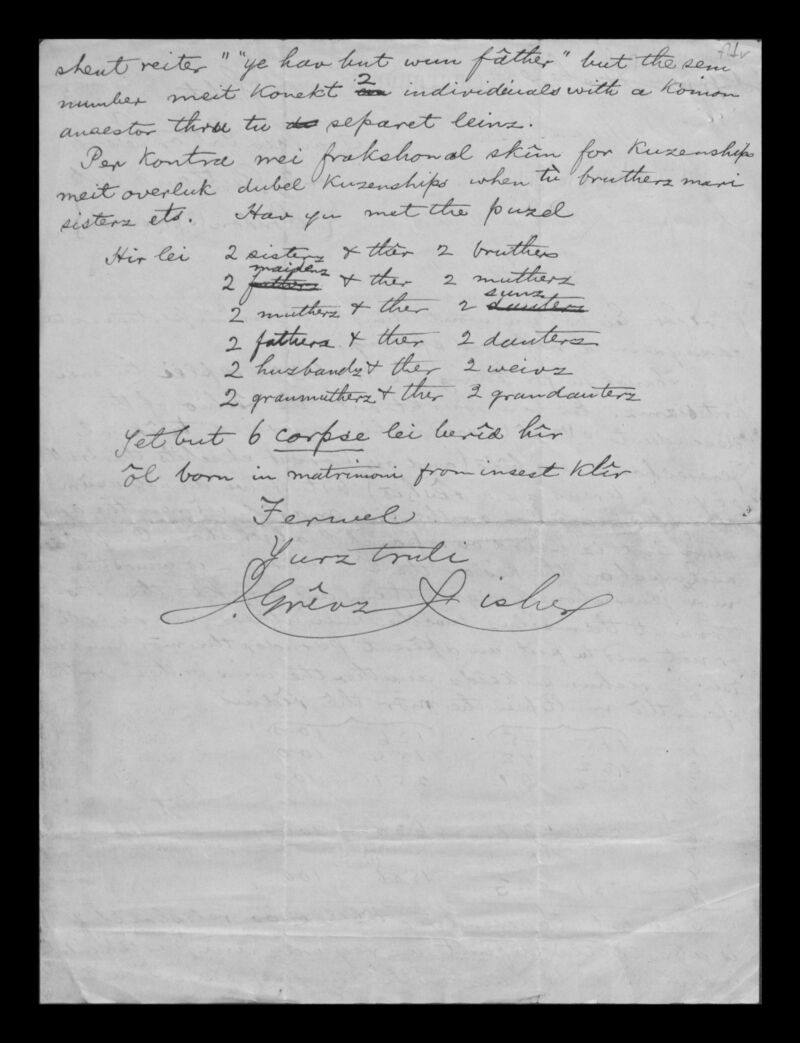 shent reiter" "ye hav but wun fâther" but the sem
number meit konekt 2 individiuals with a komon
ansestor thru tu separet leinz.
Per kontra mei frakshonal skîm for kuzenships
meit overluk dubel kuzenships when tû bruthers mari
sisterz ets. Hav yu met the puzel
Hir lei 2 sisterz & thêr 2 bruthers
2 maidenz & ther 2 mutherz
2 mutherz & ther 2 sunz
2 fathers & ther 2 dauterz
2 huzbandz & ther 2 weivz
2 granmutherz & ther 2 grandauterz
Yet but 6 corpse lei berîd hîr
ôl born in matrimoni from insest klîr
Ferwel
Yurz truli
J. Grêvz Fisher